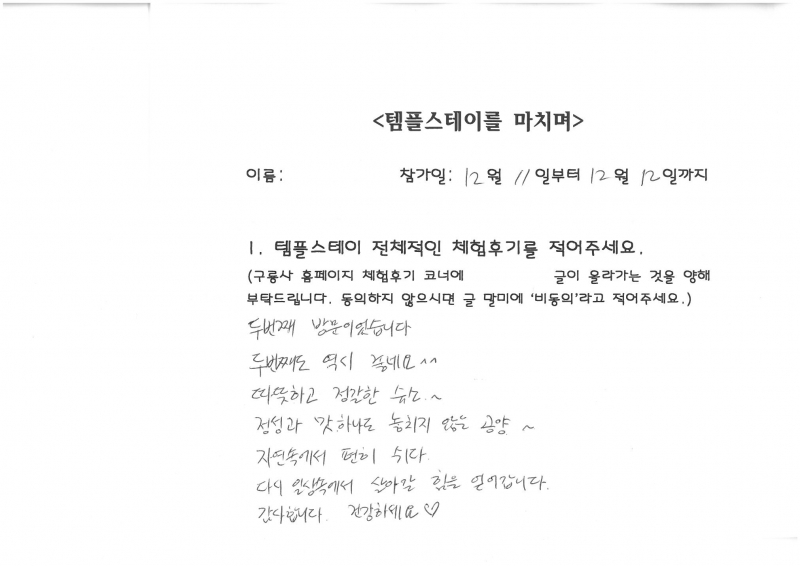 <템플스테이를 마치며>
이름: 참가일: 12월 11일부터 12월 12일까지
1. 템플스테이 전체적인 체험후기를 적어주세요.
(구룡사 홈페이지 체험후기 코너에 글이 올라가는 것을 양해
부탁드립니다. 동의하지 않으시면 글 말미에 '비동의'라고 적어주세요.)
두번째 방문이었습니다
두번째도 역시 좋네요^^
따뜻하고 정갈한 숙소.~
정성과 맛 하나도 놓치지 않는 공양 ~
자연속에서 편히 쉬다.
다시 일상속에서 살아갈 힘을 얻어갑니다.
감사합니다. 건강하세요♡